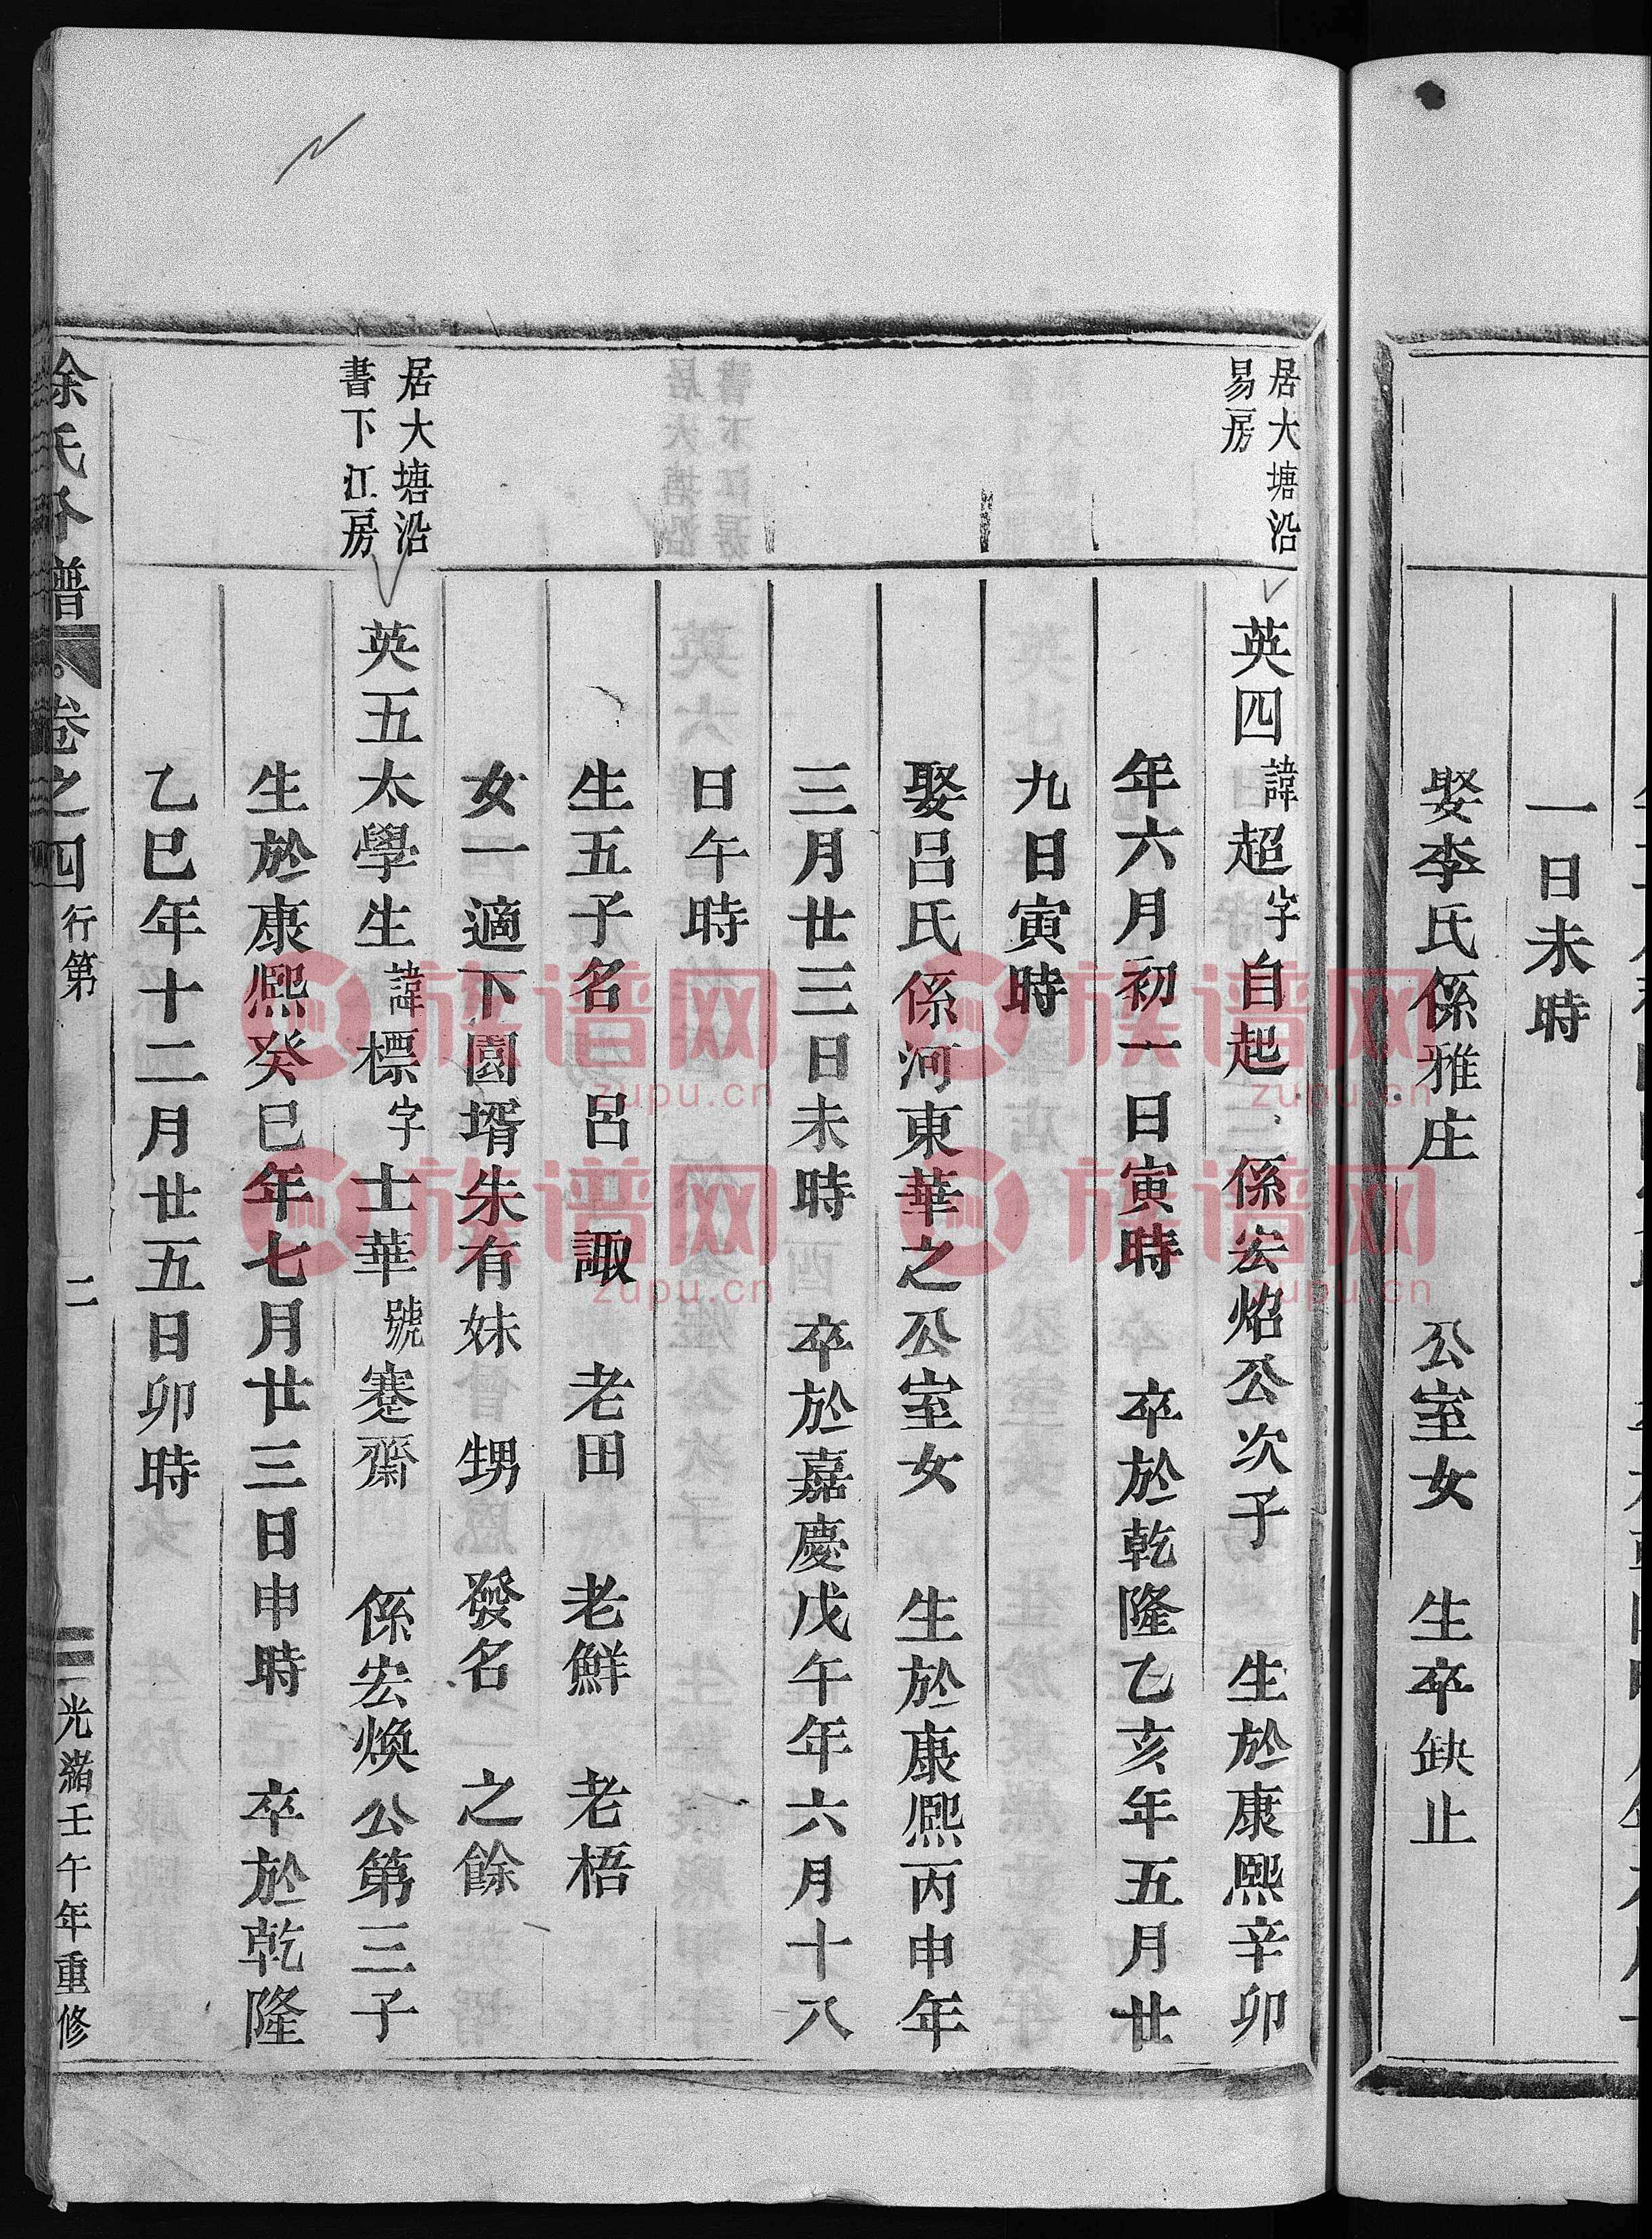 一日未時
娶李氏係雅庄　公室女　生卒缺止
居大塘沿
易房
英四諱超字自起　係宏焰公次子　生於康熙辛卯
年六月初一日寅時　卒於乾隆乙亥年五月廿
九日寅時
娶呂氏係河東華之公室女　生於康熙丙申年
三月廿三日未時　卒於嘉慶戊午年六月十八
日午時
生五子名　呂諏　老田　老鮮　老梧
女一適下園壻朱有妹　甥　發名　之餘
居大塘沿
書下江房
英五太學生諱標字士華號蹇齋　係宏煥公第三子
生於康熙癸巳年七月廿三日申時　卒於乾隆
乙巳年十二月廿五日卯時
氏
譜
卷之四　行第
二
光緒壬午年重修
族谱网
zupu.cn
族谱网
zupu.cn
族谱网
zupu.cn
族谱网
zupu.cn